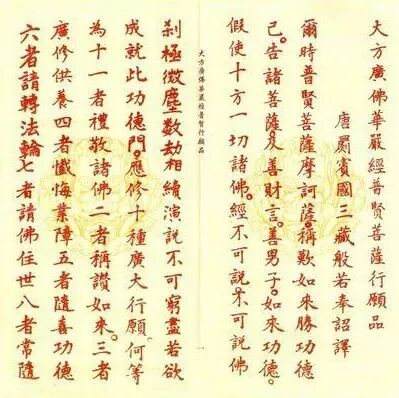 大方廣佛華嚴經普賢菩薩行願品
唐罽賓國三藏般若奉詔譯
爾時普賢菩薩摩訶薩。稱歎如來勝功德
已。告諸菩薩及善財言。善男子。如來功德。
假使十方一切諸佛。經不可說。不可說佛
大方廣佛華嚴經普賢行願品
一
刹極微塵數劫相續演說不可窮盡若欲
成就此功德門。應修十種廣大行願。何等
為十一者禮敬諸佛二者稱讚如來。三者
廣修供養四者懺悔業障五者隨喜功德
六者請轉法輪七者請佛住世八者常隨